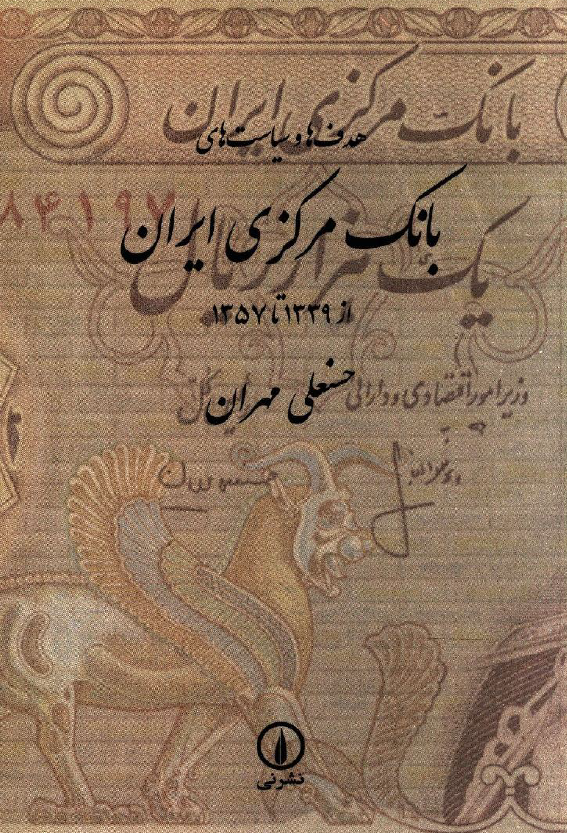 بانک مرکزی ایران
هدف‌ها و سیاست‌های
۸۴۱۹۷
بانک مرکزی ایران
یک هزار ریال
از ۱۳۳۹ تا ۱۳۵۷
حسنعلی مهران
وزیر امور اقتصادی و دارائی
کل
نشرنی